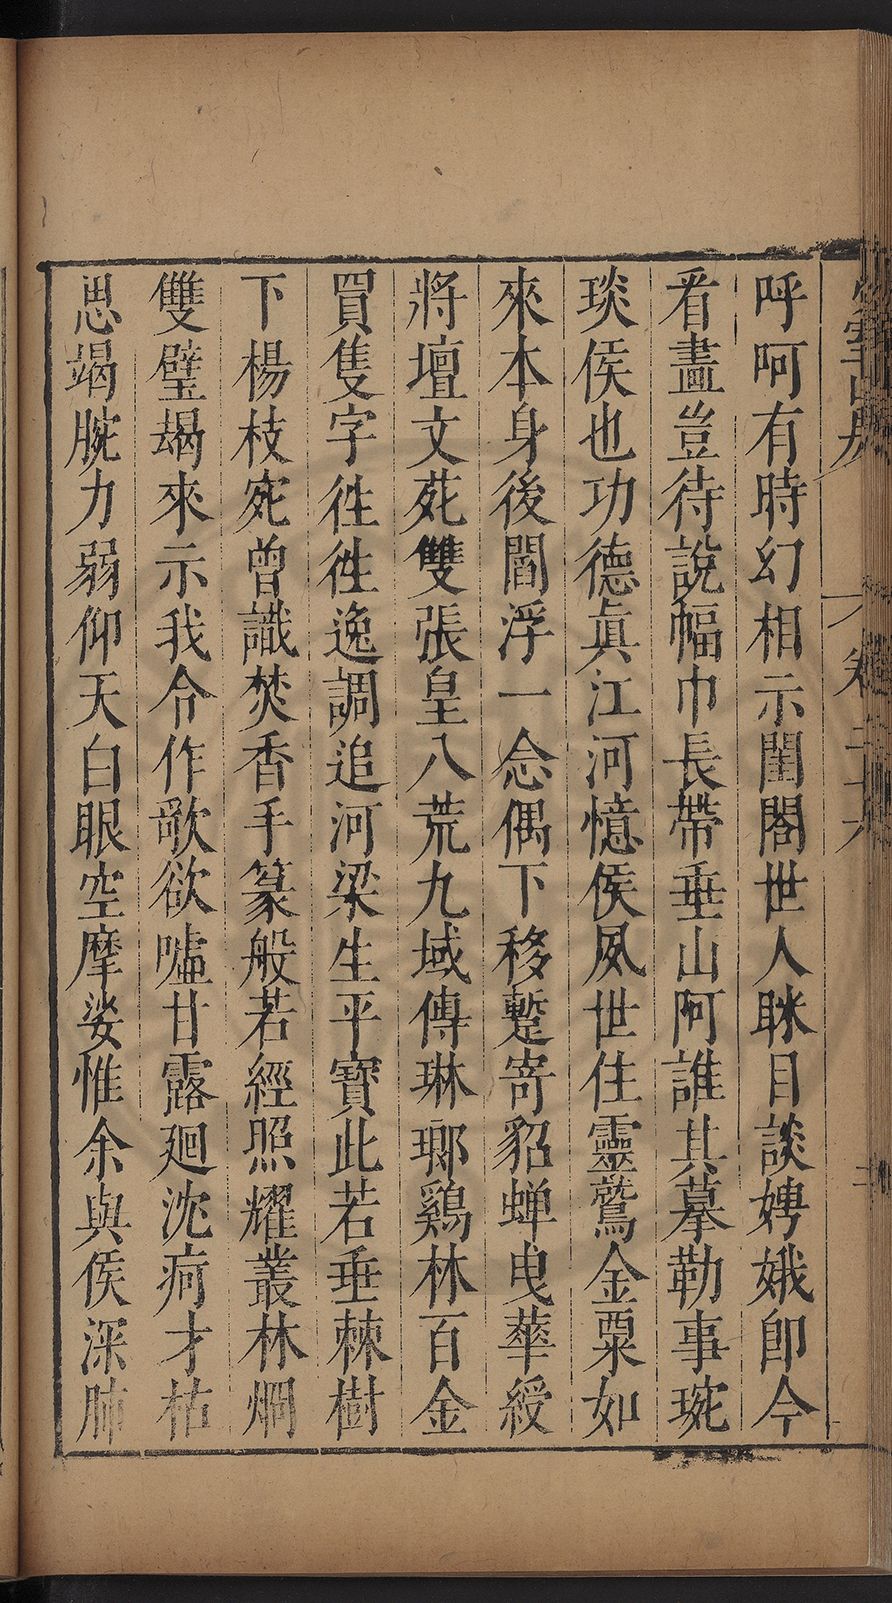 呼呵有時幻相示閨閤世人眯目談娉娥卽今
看畫豈待說幅巾長帶垂山阿誰其摹勒事琬
琰侯也功德眞江河憶侯夙世住靈鷲金粟如
來本身後閻浮一念偶下移蹔寄貂蟬曳華綬
將壇文苑雙張皇八荒九域傳琳瑯鷄林百金
買隻字徃徃逸調追河梁生平寶此若垂棘樹
下楊枝宛曾識焚香手篆般若經照耀叢林烱
雙璧朅來示我合作歌欲噓甘露廻沈痾才枯
思竭腕力弱仰天白眼空摩娑惟余與侯深肺
卷二十六